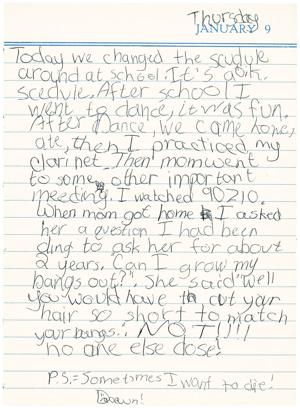 Thursday
JANUARY 9
Today we changed the scedule
around at school. It's a ok.
scedule. After school I
went to dance, it was fun.
After Dance, we came home,
ate, then I practiced my
clarinet. Then mom went
to some other important
meeding. I watched 90210.
When mom got home I asked
her a question I had been
ding to ask her for about
2 years. Can I grow my
bangs out?! She said "well
you would have to cut your
hair so short to match
your bangs. NOT!!!
no one else close!
P.S.= Sometimes I want to die!
Dawn!